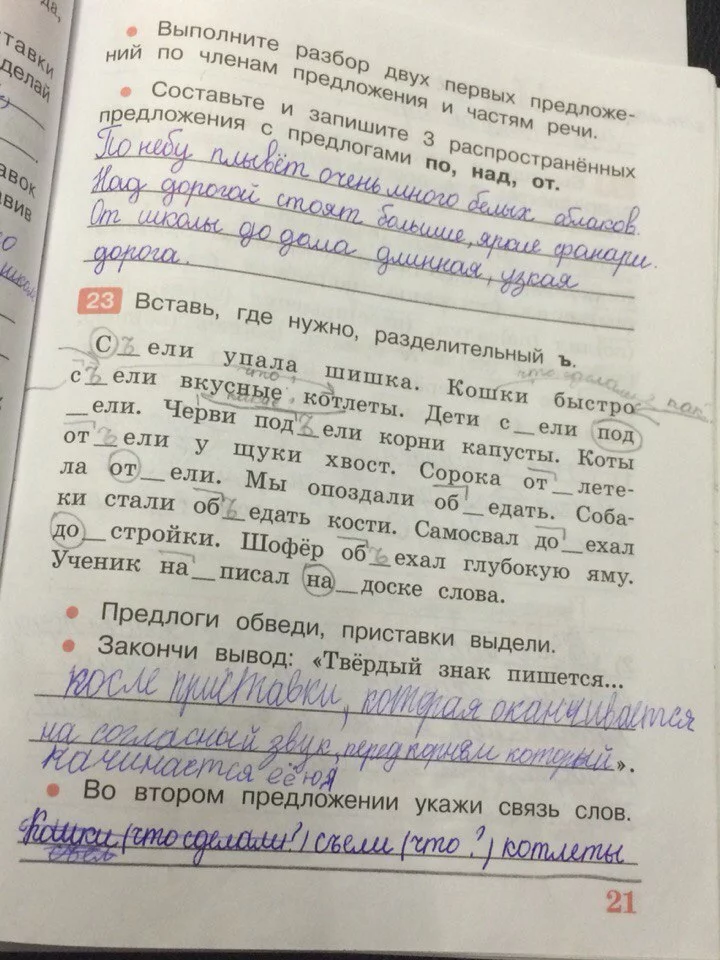 • Выполните разбор двух первых предложе-
ний по членам предложения и частям речи.
• Составьте и запишите 3 распространённых
предложения с предлогами по, над, от.
По небу плывёт очень много белых облаков.
Над дорогой стоят большие, яркие фанари.
От школы до дома длинная, узкая
дорога.
23 Вставь, где нужно, разделительный ъ.
С ъ ели упала шишка. Кошки быстро
съели вкусные котлеты. Дети с_ели под
_ели. Черви подъели корни капусты. Коты
отъели у щуки хвост. Сорока от_лете-
ла от_ели. Мы опоздали об_едать. Соба-
ки стали объедать кости. Самосвал до_ехал
до_стройки. Шофёр объехал глубокую яму.
Ученик на_писал на_доске слова.
• Предлоги обведи, приставки выдели.
• Закончи вывод: «Твёрдый знак пишется...
после приставки, которая оканчивается
на согласный звук, перед корнем который».
начинается её ю я
• Во втором предложении укажи связь слов.
Кошки (что сделали?) съели (что?) котлеты
21
тавки
делай
авок
авив